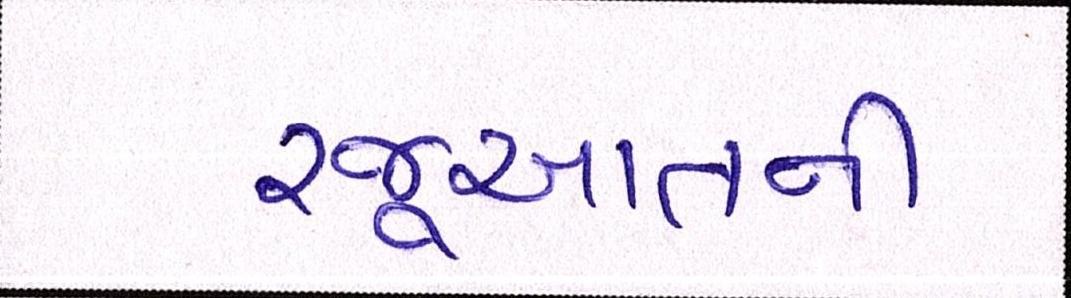 રજૂઆતની